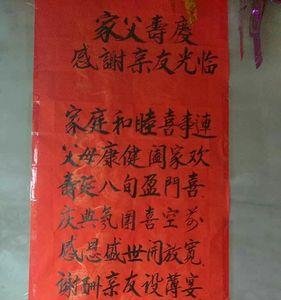 家父壽慶
感謝亲友光临
家庭和睦喜事連
父母康健阖家欢
壽延八旬盈門喜
庆典氛围喜空前
感恩盛世開放寬
謝酬亲友设薄宴